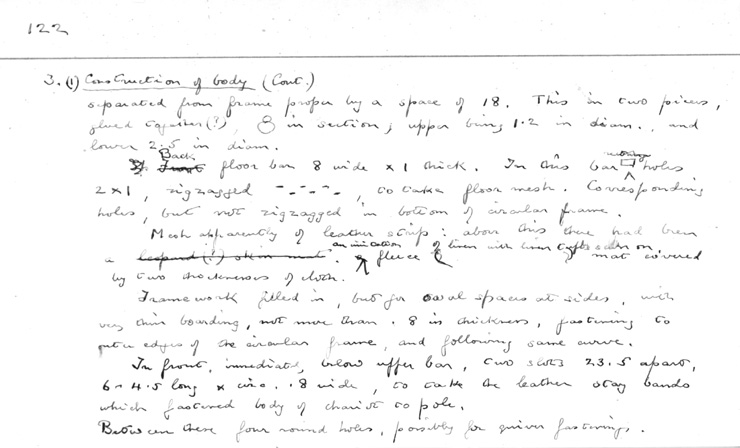 122
3. (1) Construction of body (Cont.)
separated from frame proper by a space of 18. This in two pieces,
glued together (?), 8 in section; upper being 1.2 in diam., and
lower 2.5 in diam.
Back floor bar 8 wide x 1 thick. In this bar holes
2 x 1, zigzagged -_-_-_-, to take floor mesh. Corresponding
holes, but not zigzagged in bottom of circular frame.
Mesh apparently of leather strip: above this there had been
a leopard (?) skin mat. an imitation fleece of linen with linen tufts sewn on, mat covered
by two thicknesses of cloth.
Framework filled in, but for oval spaces at sides, with
very thin boarding, not more than .8 in thickness, fastening to
outer edges of the circular frame, and following same curve.
In front, immediately below upper bar, two slots 23.5 apart,
4.5 long x circ. .8 wide, to take the leather stay bands
which fastened body of chariot to pole.
Between these four round holes, possibly for quiver fastenings.